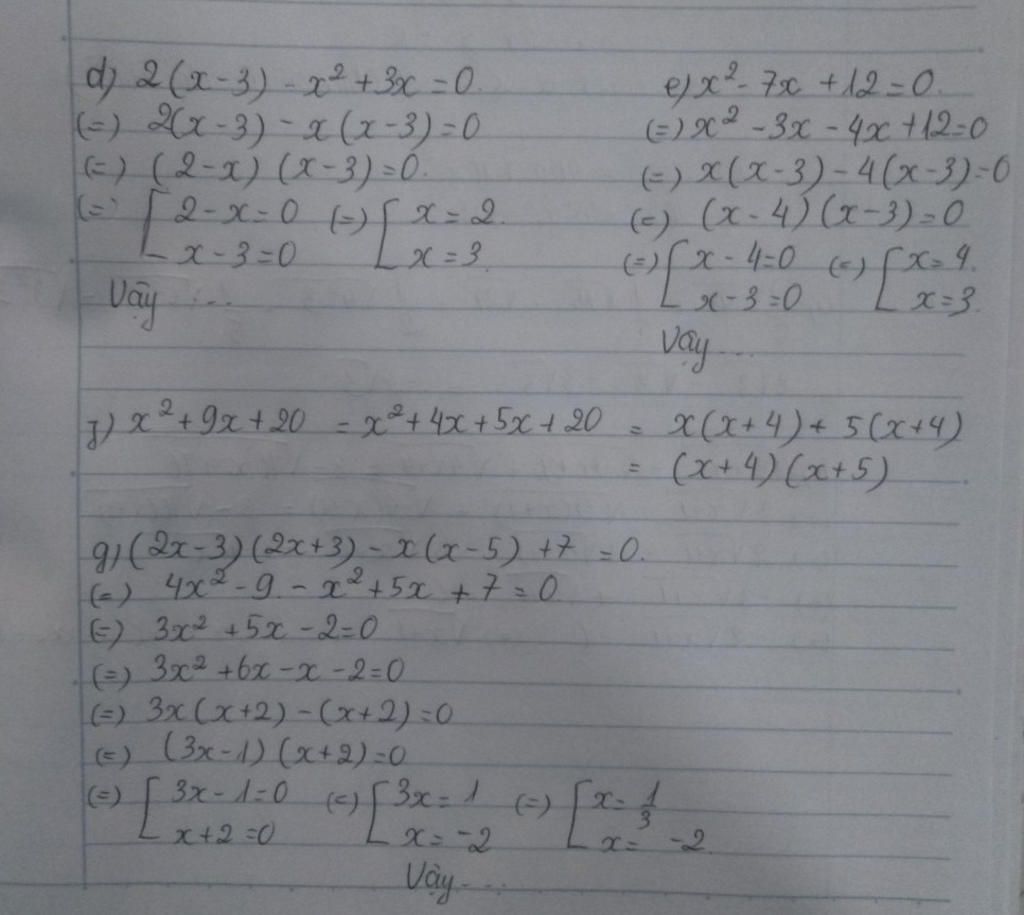 d) 2(x-3) - x² + 3x = 0.
(=) 2(x-3) - x(x-3) = 0
(=) (2-x)(x-3) = 0.
(=) [ 2-x=0 (=) [ x=2.
x-3=0 x=3.
Vậy ...
e) x² - 7x + 12 = 0.
(=) x² - 3x - 4x + 12 = 0
(=) x(x-3) - 4(x-3) = 0
(=) (x-4)(x-3) = 0
(=) [ x-4=0 (=) [ x=4.
x-3=0 x=3.
Vậy ...
f) x² + 9x + 20 = x² + 4x + 5x + 20 = x(x+4) + 5(x+4)
= (x+4)(x+5)
g) (2x-3)(2x+3) - x(x-5) + 7 = 0.
(=) 4x² - 9 - x² + 5x + 7 = 0
(=) 3x² + 5x - 2 = 0
(=) 3x² + 6x - x - 2 = 0
(=) 3x(x+2) - (x+2) = 0
(=) (3x-1)(x+2) = 0
(=) [ 3x-1=0 (=) [ 3x=1 (=) [ x=1/3
x+2=0 x=-2 x=-2.
Vậy ...